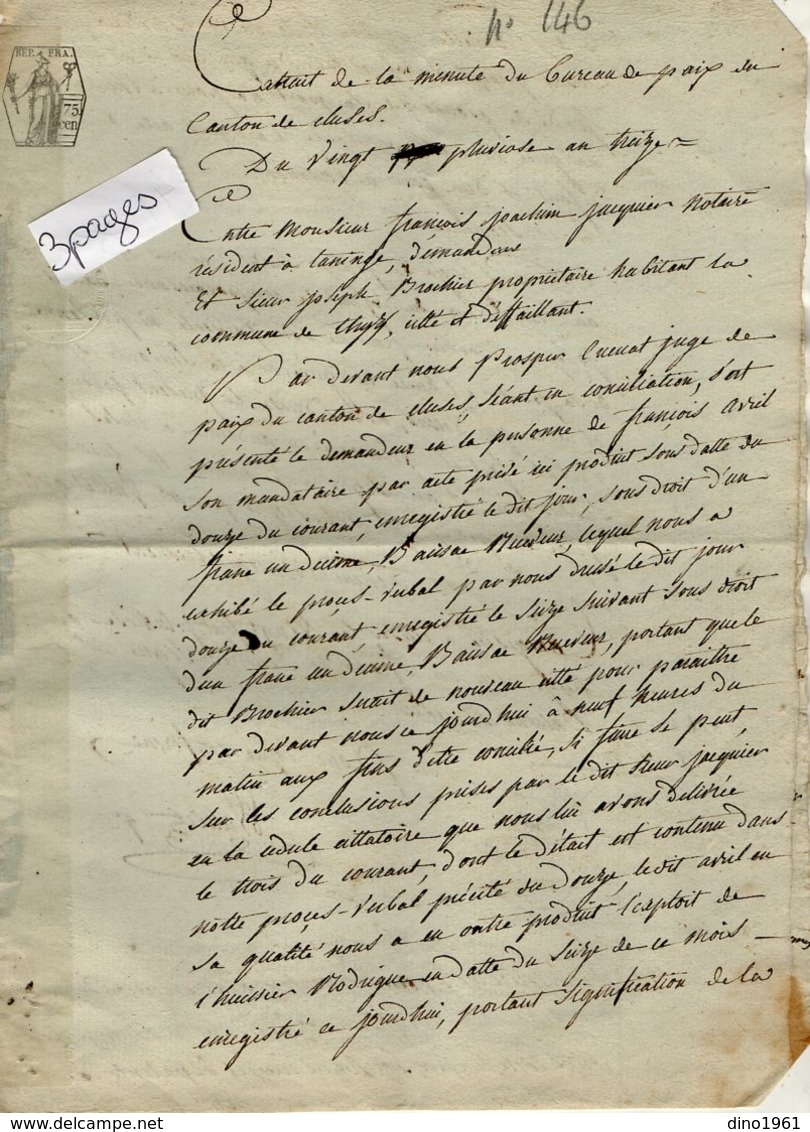 n° 146
REP. FRA.
75
cen
3 pages
Extrait de la minute du Bureau de paix du
Canton de Cluses.
Du Vingt pluviose an treize =
Entre Monsieur françois joachim jacquier Notaire
résident à taninge, demandeur
Et Sieur joseph Brochier propriétaire habitant la
commune de thyez, cité et deffaillant.
Par devant nous Prosper juge de
paix du canton de cluses, séant en conciliation, s'est
présenté le demandeur en la personne de françois avril
son mandataire par acte privé ici produit sous datte du
douze du courant, enregistré le dit jour, sous droit d'un
franc un decime, lequel nous a
exhibé le proçes-verbal par nous dressé le dit jour
douze du courant, enregistré le seize suivant sous droit
d'un franc un decime, portant que le
dit Brochier serait de nouveau citté pour paraitre
par devant nous ce jourd'hui à neuf heures du
matin aux fins d'etre concilié, si faire se peut,
sur les conclusions prises par le dit sieur jacquier
en la cedule cittatoire que nous lui avons delivrée
le trois du courant, dont le détail est contenu dans
notte proçes-verbal précité du douze, le dit avril en
sa qualité nous a en outre produit l'exploit de
l'huissier Rodrigue en datte du seize de ce mois
enregistré ce jourd'hui, portant signification de la
dino1961